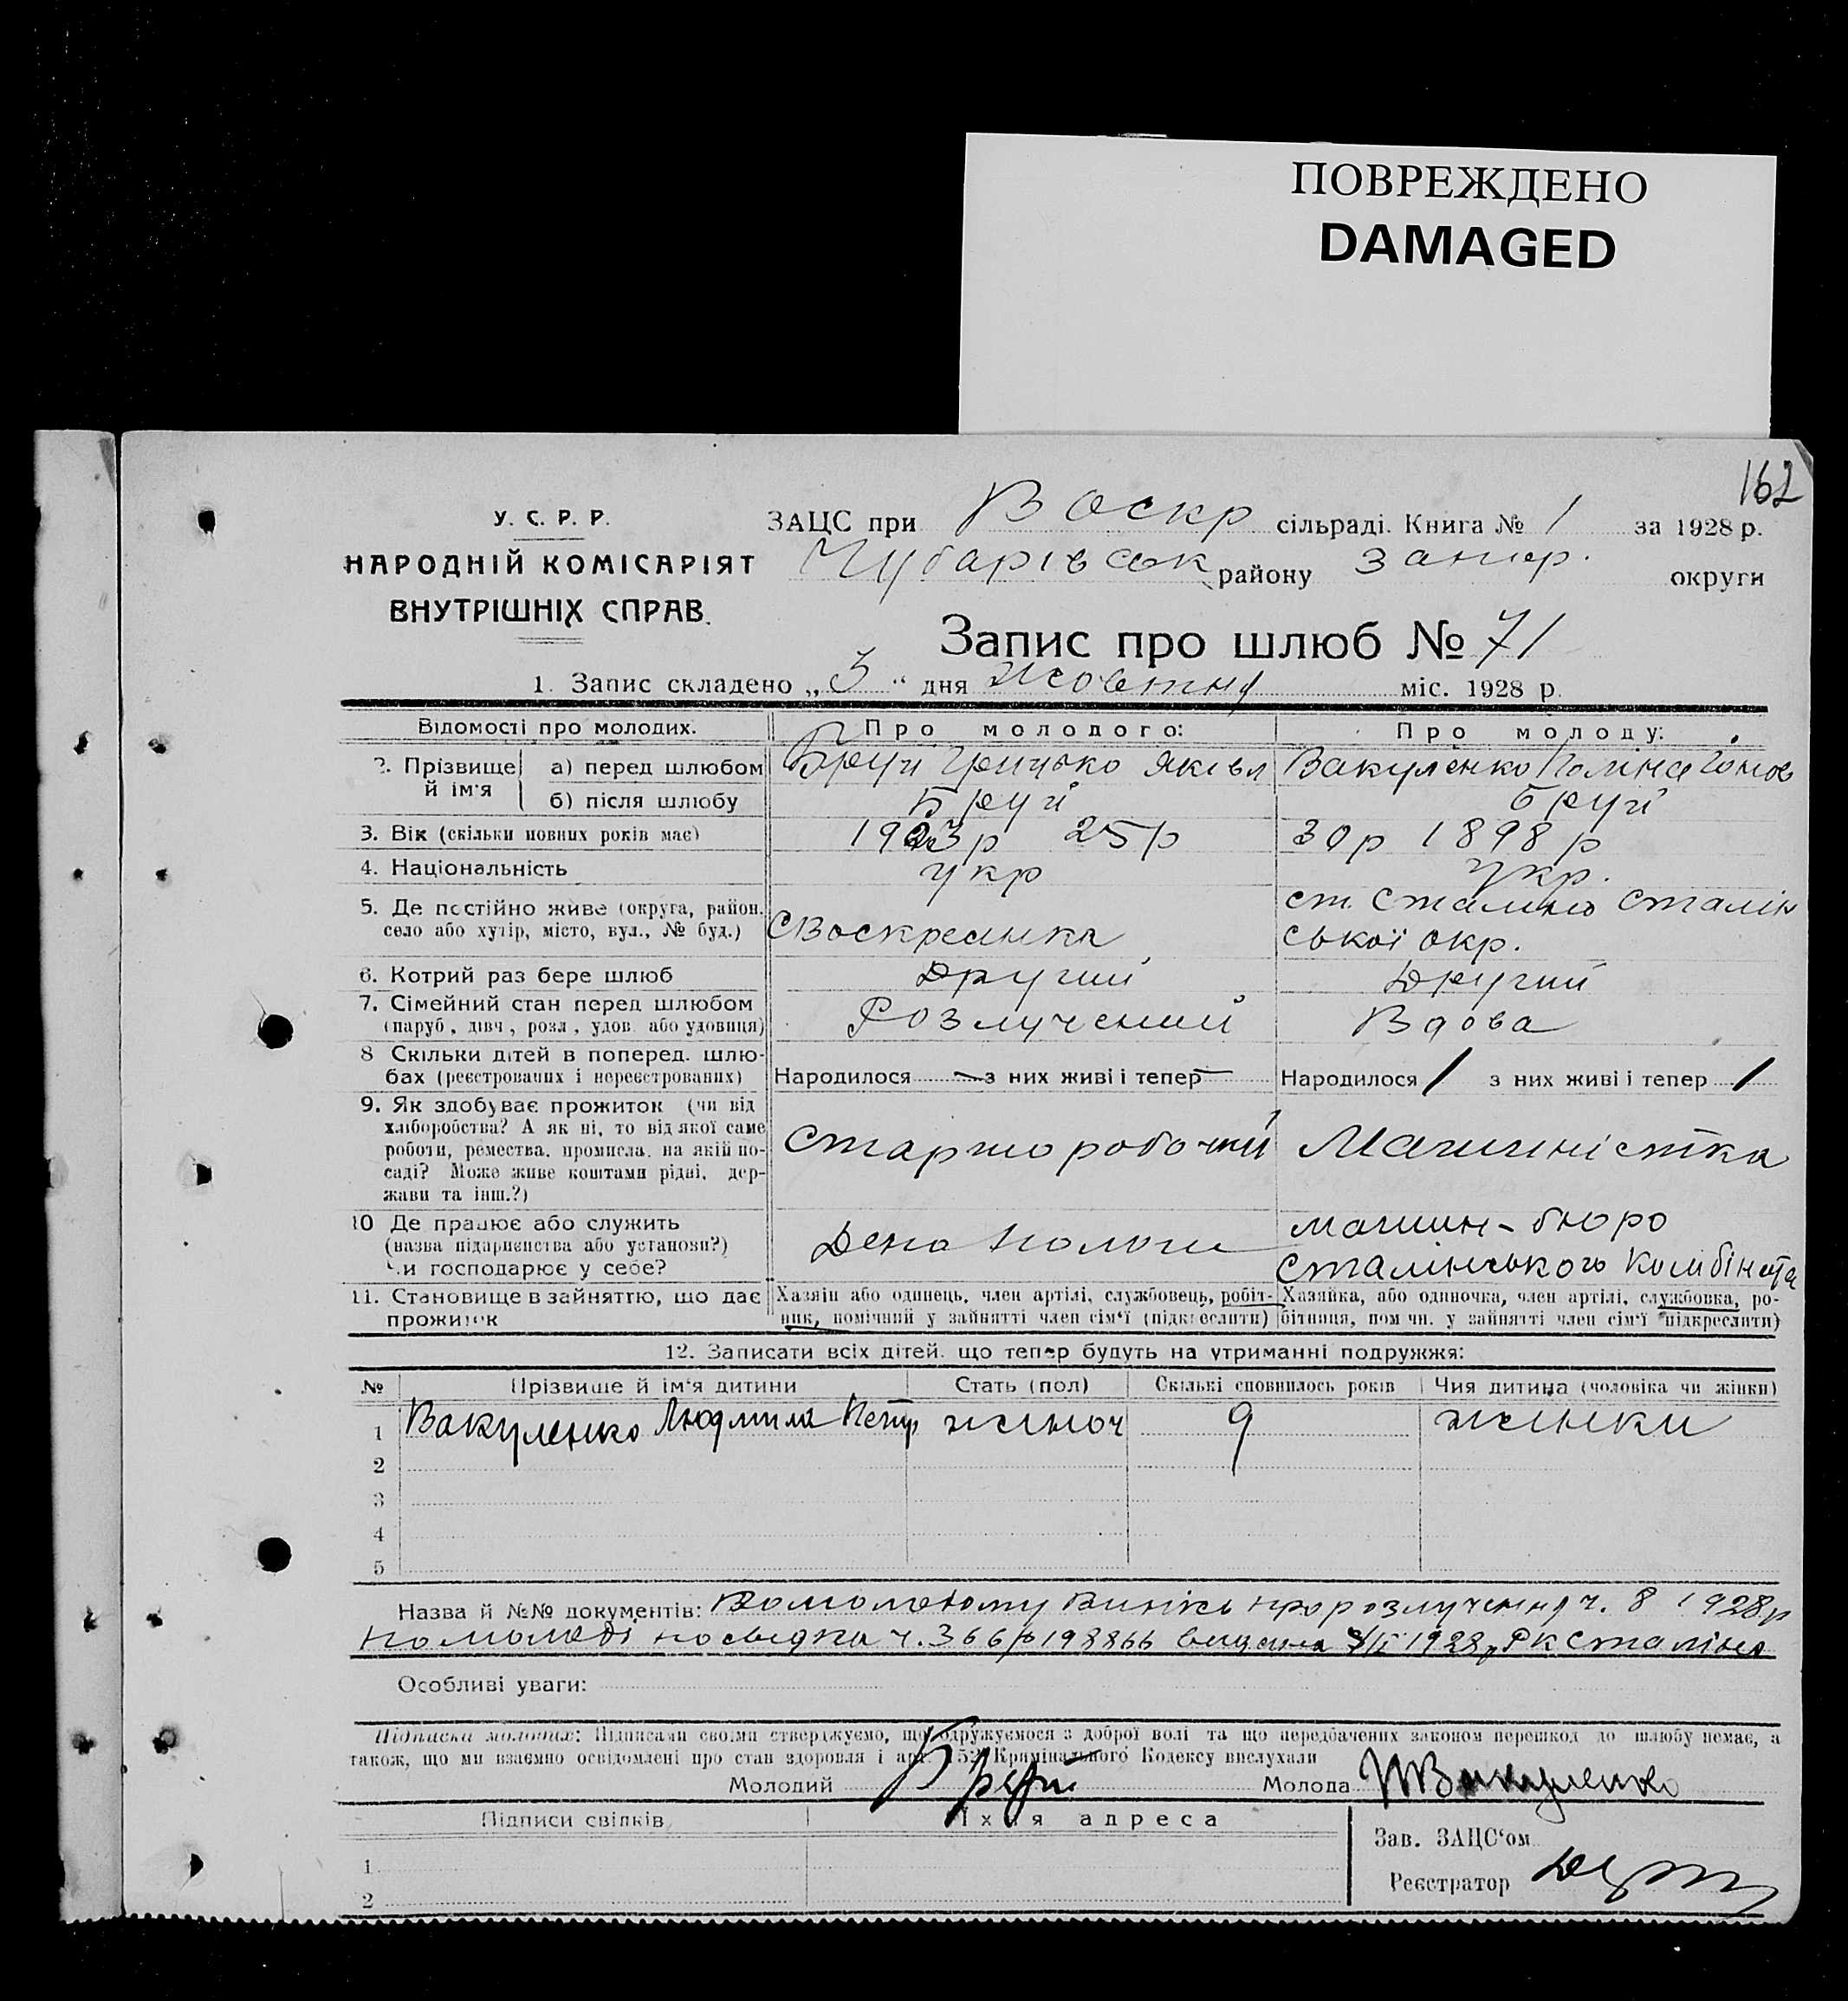 ПОВРЕЖДЕНО
DAMAGED
162
У. С. Р. Р.
НАРОДНІЙ КОМІСАРІЯТ
ВНУТРІШНІХ СПРАВ.
ЗАЦС при Воскр сільраді. Книга № 1 за 1928 р.
Чубарівськ району Запор. округи
Запис про шлюб № 71
1. Запис складено „3“ дня Жовтня міс. 1928 р.
Відомості про молодих. Про молодого: Про молоду:
2. Прізвище й ім'я а) перед шлюбом Бруй Грицько Яківл Вакуленко Поліна Йонов
б) після шлюбу Бруй Бруй
3. Вік (скільки повних років має) 1903р 25р 30р 1898р
4. Національність укр укр.
5. Де постійно живе (округа, район. ст. Сталіно Сталін
село або хутір, місто, вул., № буд.) С Воскресинка ської окр.
6. Котрий раз бере шлюб Другий Другий
7. Сімейний стан перед шлюбом
(паруб., дівч., розл., удов. або удовиця) Розлучений Вдова
8 Скільки дітей в поперед. шлю-
бах (реєстрованих і нереєстрованих) Народилося — з них живі і тепер — Народилося 1 з них живі і тепер 1
9. Як здобуває прожиток (чи від
хліборобства? А як ні, то від якої саме
роботи, ремества, промисла, на якій по- Старшо робочий Машиністка
саді? Може живе коштами рідні, дер-
жави та інш.?)
10 Де працює або служить машин-бюро
(назва підприємства або установи?) Депо Пологи
Чи господарює у себе? Сталінського Комбіната
11. Становище в зайняттю, що дає Хазяїн або одинець, член артілі, службовець, робіт- Хазяйка, або одиночка, член артілі, службовка, ро-
прожиток ник, помічний у зайнятті член сім'ї (підкреслити) бітниця, пом чн. у зайнятті член сім'ї підкреслити)
12. Записати всіх дітей, що тепер будуть на утриманні подружжя:
№ Прізвище й ім'я дитини Стать (пол) Скількі сповнилось років Чия дитина (чоловіка чи жінки)
1 Вакуленко Людмила Петр жіноч 9 жінки
2
3
4
5
Назва й №№ документів: Вомолодому Випись про розлучення ч. 8 1928р
помолоді посвідка ч. 366/р 198866 1928р РК Сталіно
Особливі уваги:
Підписка молодих: Підписами своїми стверджуємо, що одружуємося з доброї волі та що передбачених законом перешкод до шлюбу немає, а
також, що ми взаємно освідомлені про стан здоровля і арт. 152 Кримінального Кодексу вислухали
Молодий Бруй Молода ПВакуленко
Підписи свілків Їхня адреса
Зав. ЗАЦС'ом
1
Реєстратор
2